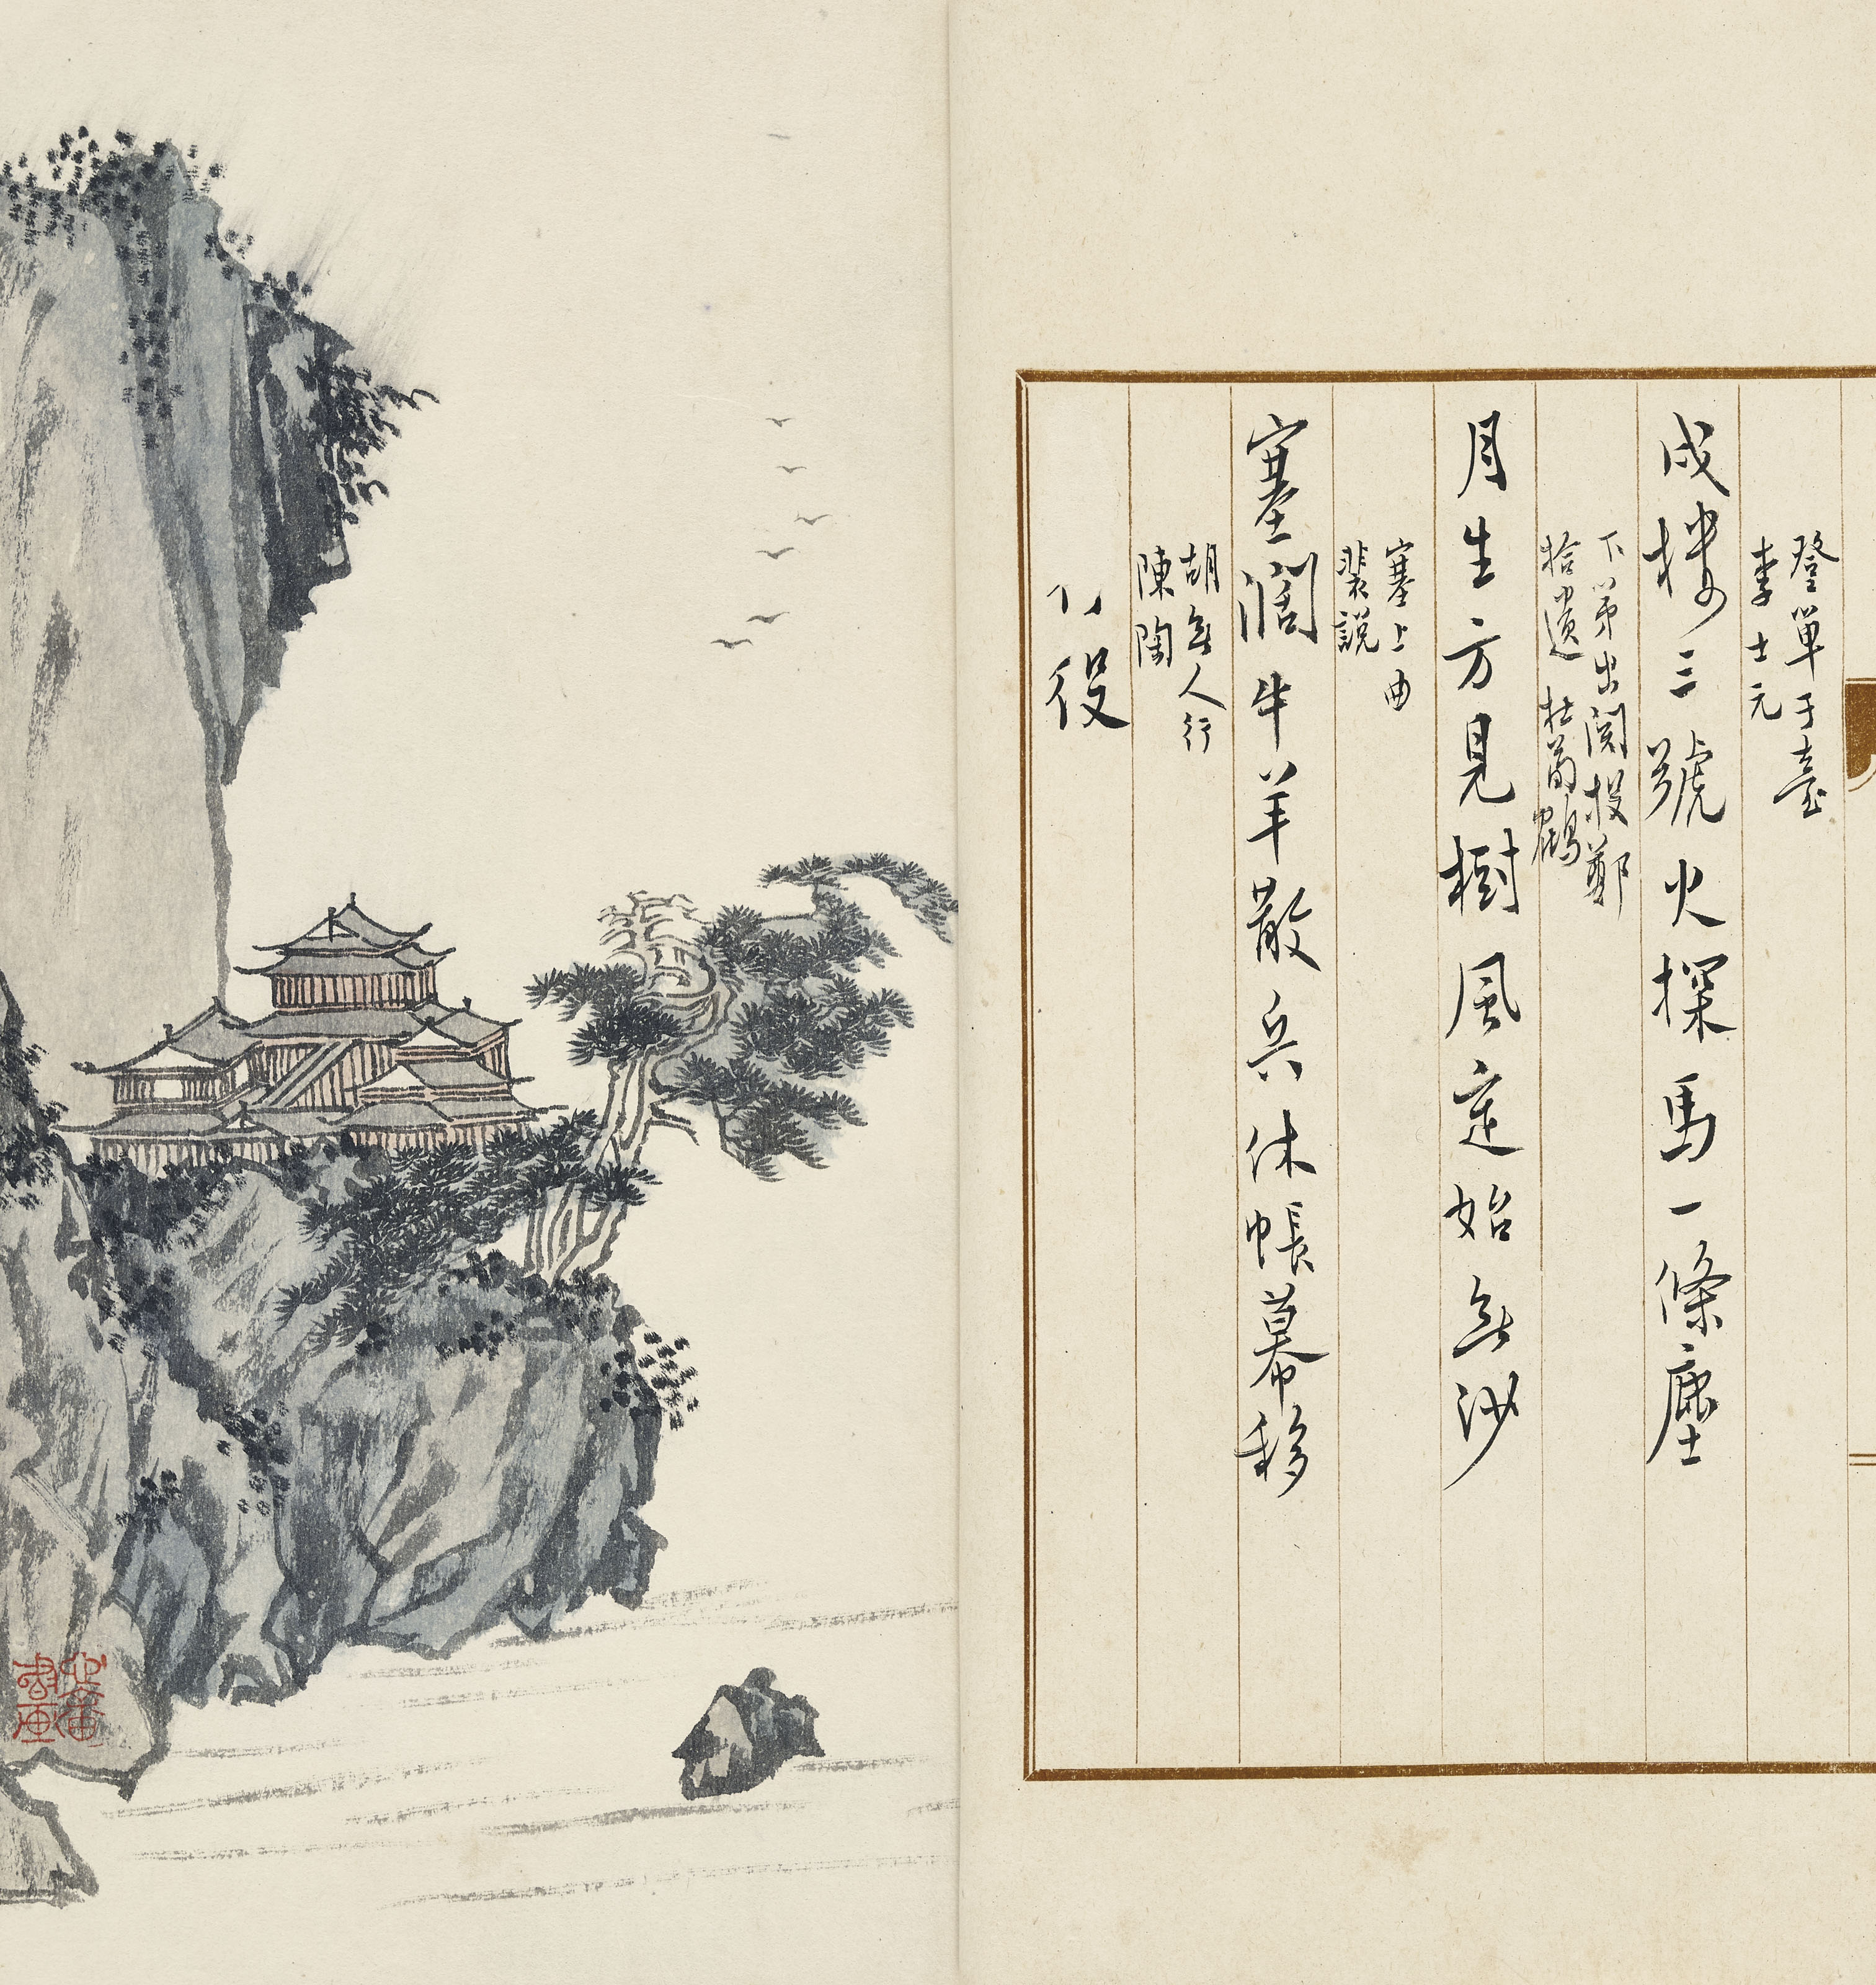 登單于臺
李士元
戍樓三號火探馬一條塵
下第出關投鄭
拾遺 杜荀鶴
月生方見樹風定始無沙
塞上曲
裴説
塞闊牛羊散兵休帳幕移
胡無人行
陳陶
行役